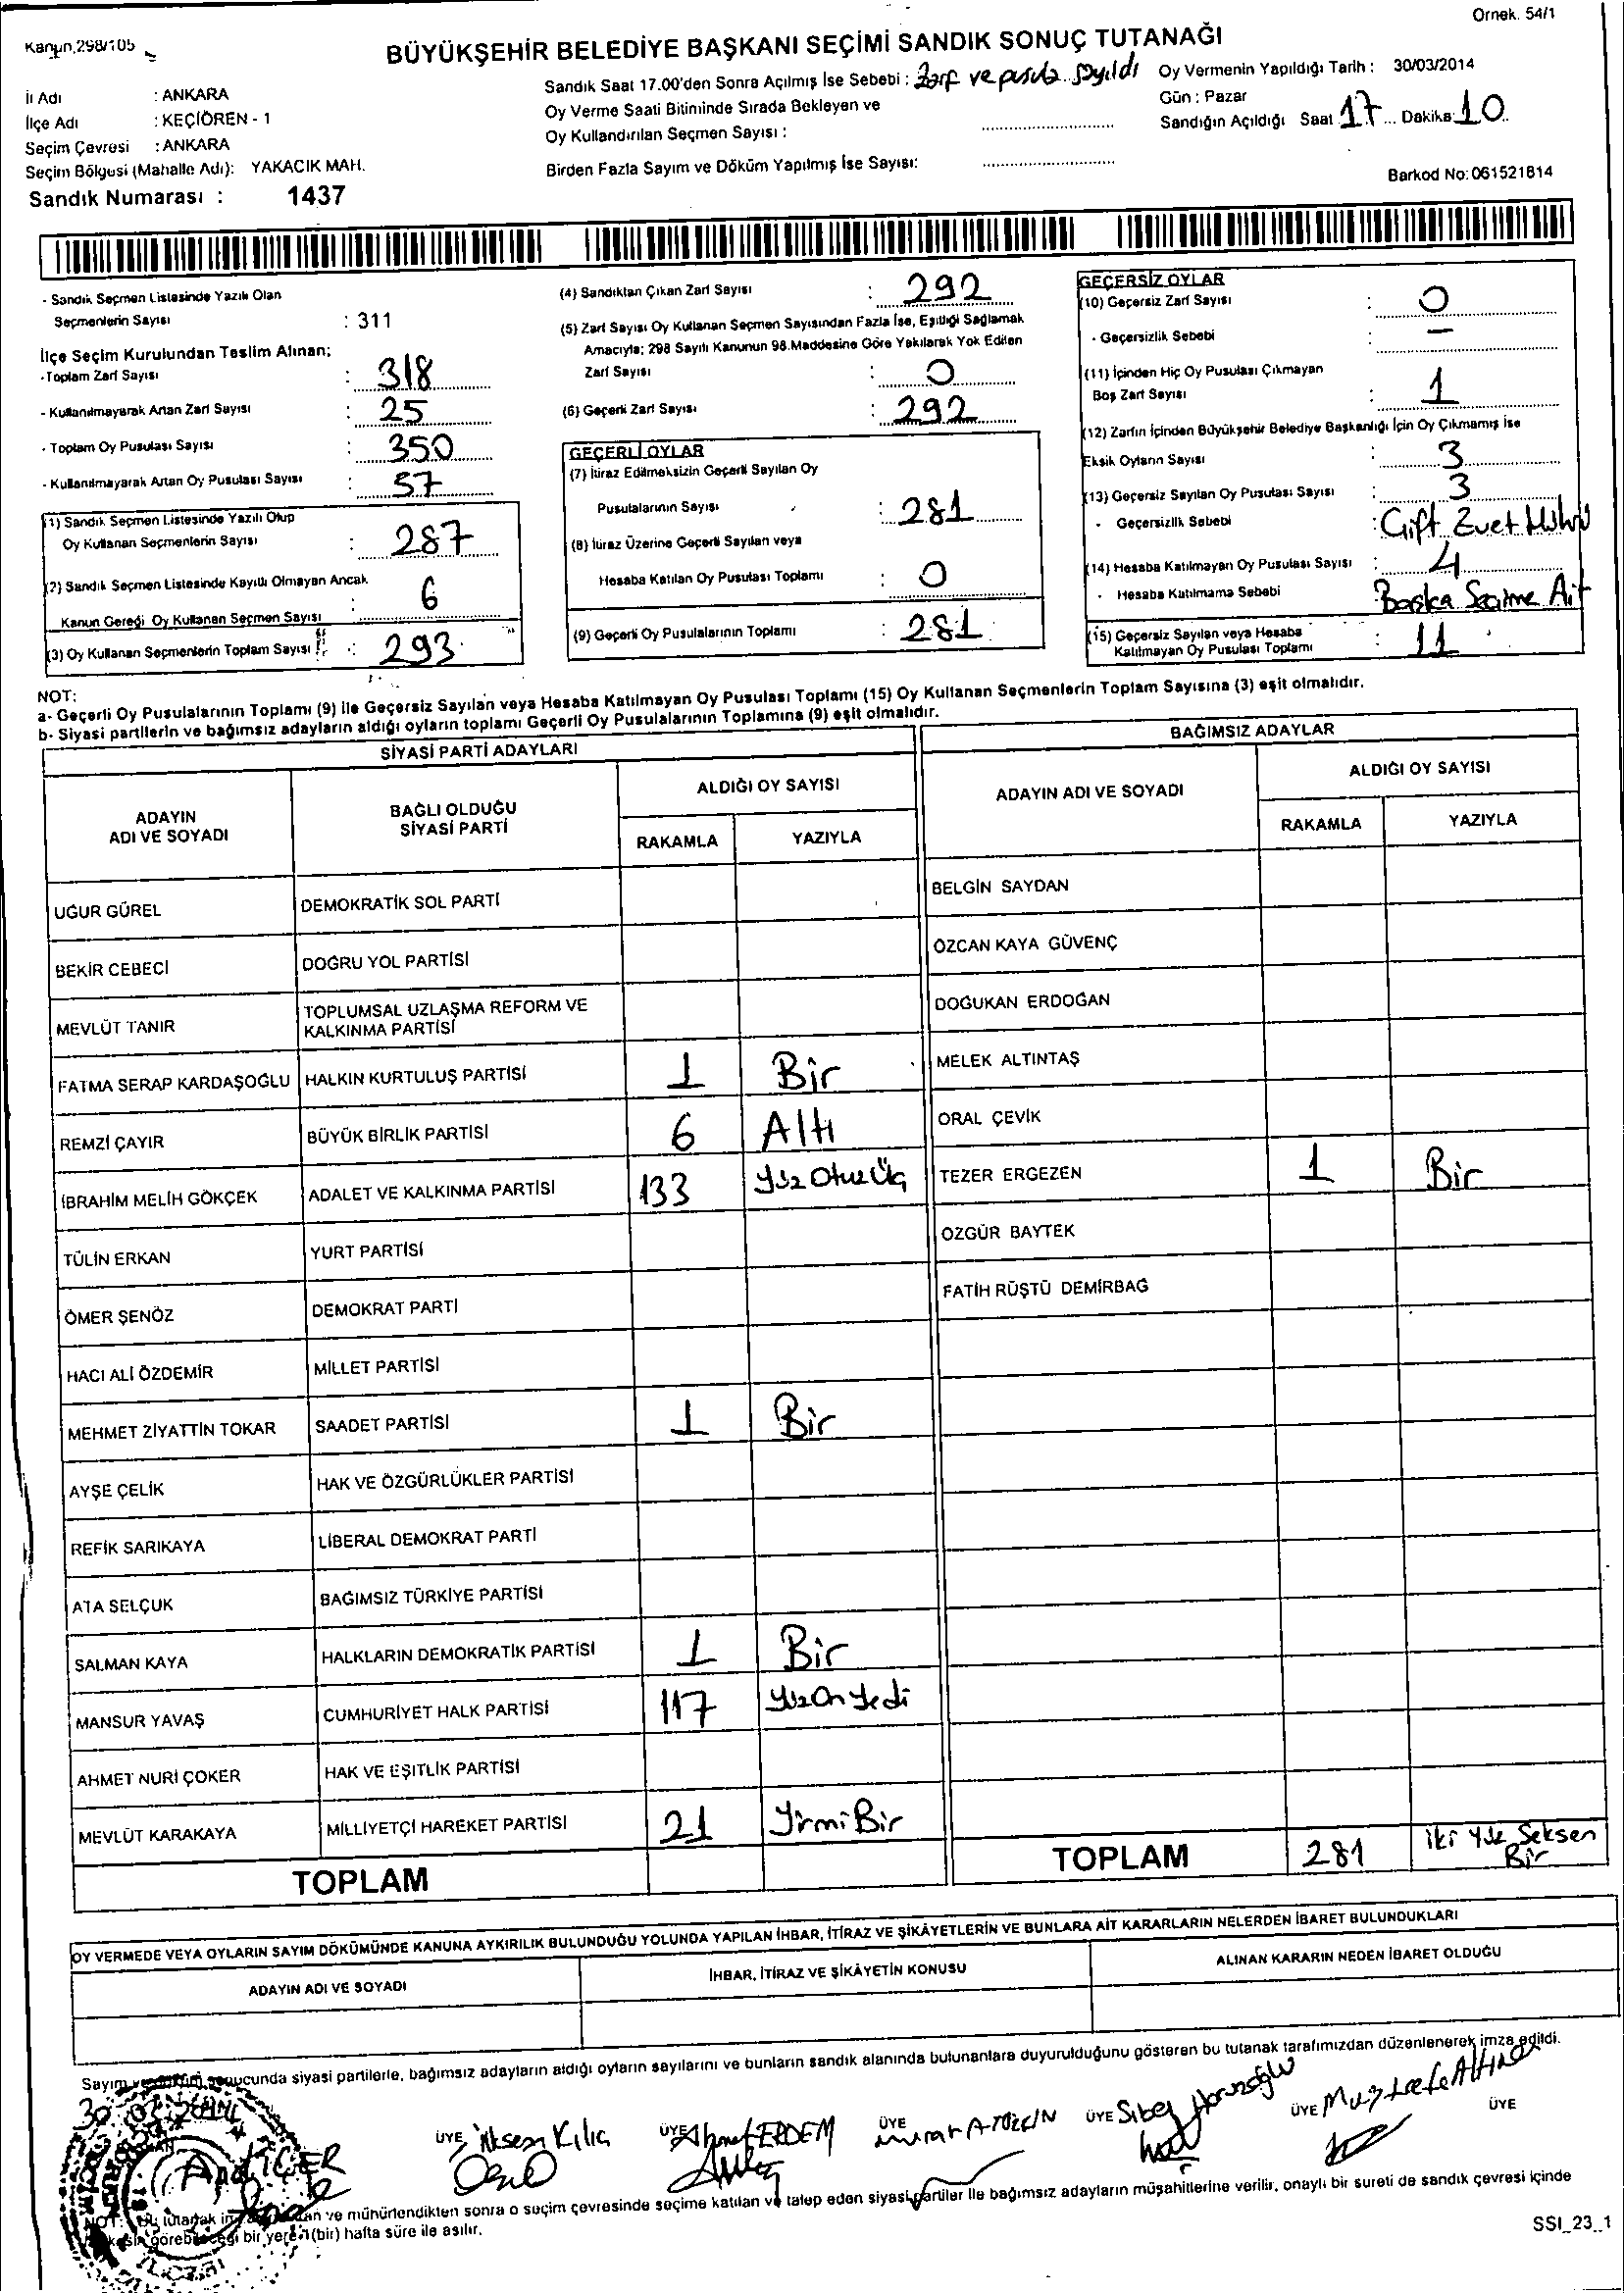 Örnek. 54/1
Kanun,298/105
BÜYÜKŞEHİR BELEDİYE BAŞKANI SEÇİMİ SANDIK SONUÇ TUTANAĞI
İl Adı : ANKARA
İlçe Adı : KEÇİÖREN - 1
Seçim Çevresi : ANKARA
Seçim Bölgesi (Mahalle Adı): YAKACIK MAH.
Sandık Numarası : 1437
Sandık Saat 17.00'den Sonra Açılmış İse Sebebi : Zarf ve pusula sayıldı
Oy Verme Saati Bitiminde Sırada Bekleyen ve
Oy Kullandırılan Seçmen Sayısı :
Birden Fazla Sayım ve Döküm Yapılmış İse Sayısı:
Oy Vermenin Yapıldığı Tarih : 30/03/2014
Gün : Pazar
Sandığın Açıldığı Saat 17 ... Dakika: 10
Barkod No:061521814
- Sandık Seçmen Listesinde Yazılı Olan
Seçmenlerin Sayısı : 311
İlçe Seçim Kurulundan Teslim Alınan;
-Toplam Zarf Sayısı : 318
- Kullanılmayarak Artan Zarf Sayısı : 25
- Toplam Oy Pusulası Sayısı : 350
- Kullanılmayarak Artan Oy Pusulası Sayısı : 57
(1) Sandık Seçmen Listesinde Yazılı Olup
Oy Kullanan Seçmenlerin Sayısı : 287
(2) Sandık Seçmen Listesinde Kayıtlı Olmayan Ancak
Kanun Gereği Oy Kullanan Seçmen Sayısı : 6
(3) Oy Kullanan Seçmenlerin Toplam Sayısı : 293
(4) Sandıktan Çıkan Zarf Sayısı : 292
(5) Zarf Sayısı Oy Kullanan Seçmen Sayısından Fazla İse, Eşitliği Sağlamak
Amacıyla; 298 Sayılı Kanunun 98.Maddesine Göre Yakılarak Yok Edilen
Zarf Sayısı : 0
(6) Geçerli Zarf Sayısı : 292
GEÇERLİ OYLAR
(7) İtiraz Edilmeksizin Geçerli Sayılan Oy
Pusulalarının Sayısı : 281
(8) İtiraz Üzerine Geçerli Sayılan veya
Hesaba Katılan Oy Pusulası Toplamı : 0
(9) Geçerli Oy Pusulalarının Toplamı : 281
GEÇERSİZ OYLAR
(10) Geçersiz Zarf Sayısı : 0
- Geçersizlik Sebebi : -
(11) İçinden Hiç Oy Pusulası Çıkmayan
Boş Zarf Sayısı : 1
(12) Zarfın İçinden Büyükşehir Belediye Başkanlığı İçin Oy Çıkmamış İse
Eksik Oyların Sayısı : 3
(13) Geçersiz Sayılan Oy Pusulası Sayısı : 3
- Geçersizlik Sebebi : Çift Evet Mührü
(14) Hesaba Katılmayan Oy Pusulası Sayısı : 4
- Hesaba Katılmama Sebebi : Başka Seçime Ait
(15) Geçersiz Sayılan veya Hesaba
Katılmayan Oy Pusulası Toplamı : 11
NOT:
a- Geçerli Oy Pusulalarının Toplamı (9) ile Geçersiz Sayılan veya Hesaba Katılmayan Oy Pusulası Toplamı (15) Oy Kullanan Seçmenlerin Toplam Sayısına (3) eşit olmalıdır.
b- Siyasi partilerin ve bağımsız adayların aldığı oyların toplamı Geçerli Oy Pusulalarının Toplamına (9) eşit olmalıdır.
SİYASİ PARTİ ADAYLARI
ADAYIN ADI VE SOYADI
BAĞLI OLDUĞU SİYASİ PARTİ
ALDIĞI OY SAYISI
RAKAMLA YAZIYLA
UĞUR GÜREL DEMOKRATİK SOL PARTİ
BEKİR CEBECİ DOĞRU YOL PARTİSİ
MEVLÜT TANIR TOPLUMSAL UZLAŞMA REFORM VE KALKINMA PARTİSİ
FATMA SERAP KARDAŞOĞLU HALKIN KURTULUŞ PARTİSİ 1 Bir
REMZİ ÇAYIR BÜYÜK BİRLİK PARTİSİ 6 Altı
İBRAHİM MELİH GÖKÇEK ADALET VE KALKINMA PARTİSİ 133 Yüz Otuz Üç
TÜLİN ERKAN YURT PARTİSİ
ÖMER ŞENÖZ DEMOKRAT PARTİ
HACI ALİ ÖZDEMİR MİLLET PARTİSİ
MEHMET ZİYATTİN TOKAR SAADET PARTİSİ 1 Bir
AYŞE ÇELİK HAK VE ÖZGÜRLÜKLER PARTİSİ
REFİK SARIKAYA LİBERAL DEMOKRAT PARTİ
ATA SELÇUK BAĞIMSIZ TÜRKİYE PARTİSİ
SALMAN KAYA HALKLARIN DEMOKRATİK PARTİSİ 1 Bir
MANSUR YAVAŞ CUMHURİYET HALK PARTİSİ 117 Yüz On Yedi
AHMET NURİ ÇOKER HAK VE EŞİTLİK PARTİSİ
MEVLÜT KARAKAYA MİLLİYETÇİ HAREKET PARTİSİ 21 Yirmi Bir
TOPLAM
BAĞIMSIZ ADAYLAR
ADAYIN ADI VE SOYADI
ALDIĞI OY SAYISI
RAKAMLA YAZIYLA
BELGİN SAYDAN
ÖZCAN KAYA GÜVENÇ
DOĞUKAN ERDOĞAN
MELEK ALTINTAŞ
ORAL ÇEVİK
TEZER ERGEZEN 1 Bir
ÖZGÜR BAYTEK
FATİH RÜŞTÜ DEMİRBAĞ
TOPLAM 281 İki Yüz Seksen Bir
OY VERMEDE VEYA OYLARIN SAYIM DÖKÜMÜNDE KANUNA AYKIRILIK BULUNDUĞU YOLUNDA YAPILAN İHBAR, İTİRAZ VE ŞİKÂYETLERİN VE BUNLARA AİT KARARLARIN NELERDEN İBARET BULUNDUKLARI
ADAYIN ADI VE SOYADI
İHBAR, İTİRAZ VE ŞİKÂYETİN KONUSU
ALINAN KARARIN NEDEN İBARET OLDUĞU
Sayım sonucunda siyasi partilerle, bağımsız adayların aldığı oyların sayılarını ve bunların sandık alanında bulunanlara duyurulduğunu gösteren bu tutanak tarafımızdan düzenlenerek imza edildi.
30.03.2014
ÜYE Kılıç
ÜYE Ahmet ERDEM
ÜYE Murat
ÜYE Sibel Horozoğlu
ÜYE Mustafa
ÜYE
NOT: Bu tutanak ve mühürlendikten sonra o seçim çevresinde seçime katılan ve talep eden siyasi partiler ile bağımsız adayların müşahitlerine verilir, onaylı bir sureti de sandık çevresi içinde
görebileceği bir yere 1(bir) hafta süre ile asılır.
SSI_23_1